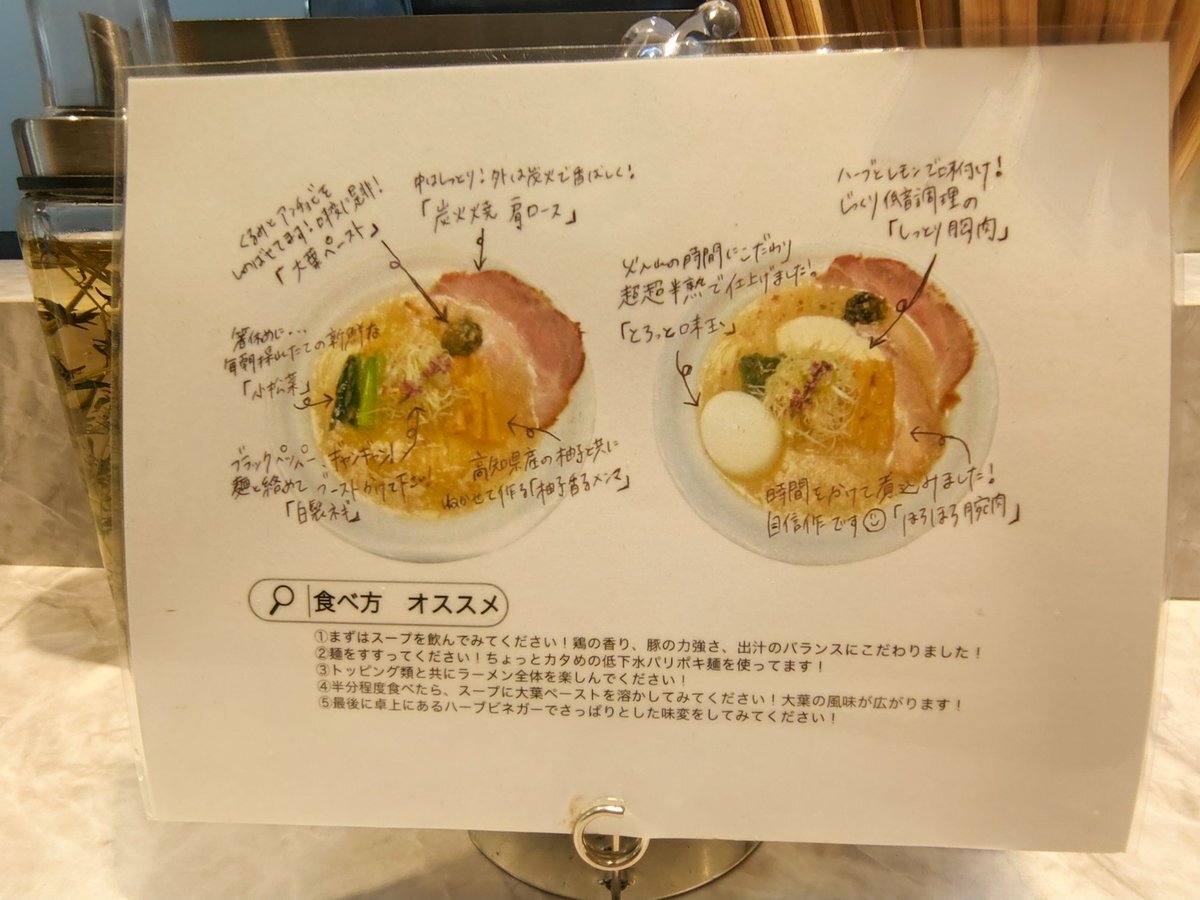 くるみとアンチョビを
しのばせてます!味変に是非!
「大葉ペースト」
中はしっとり!外は炭火で香ばしく!
「炭火焼 肩ロース」
箸休めに...
毎朝採れたての新鮮な
「小松菜」
ブラックペッパー、ギャンギャン!
麺と絡めて ブーストかけて下さい!
「白髪ネギ」
高知県産の柚子と共に
ねかせて作る「柚子香るメンマ」
ハーブとレモンで味付け!
じっくり低音調理の
「しっとり胸肉」
の時間にこだわり
超超半熟で仕上げました!
「とろっと味玉」
時間をかけて煮込みました!
自信作です☺「ほろほろ腕肉」
食べ方 オススメ
①まずはスープを飲んでみてください!鶏の香り、豚の力強さ、出汁のバランスにこだわりました!
②麺をすすってください!ちょっとカタめの低下水パリポキ麺を使ってます!
③トッピング類と共にラーメン全体を楽しんでください!
④半分程度食べたら、スープに大葉ペーストを溶かしてみてください!大葉の風味が広がります!
⑤最後に卓上にあるハーブビネガーでさっぱりとした味変をしてみてください!